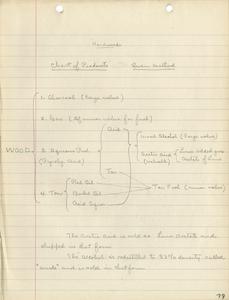 Hardwoods
Chart of Products Oven method
1. Charcoal (Large value)
2. Gas (of minor value for fuel)
Acid
Wood Alcohol (Large value)
WOOD
3. Aqueous Prod.
(Pyrolig. Acid)
Acetic Acid
(valuable)
Lime added gives
Acetate of Lime
Tar
4. Tar
Acid Liquor
Tar Pool (minor value)
The acetic acid is sold as Lime acetate and
shipped in that form
The alcohol is redistilled to 82% density called
"crude" and is sold in that form.
79